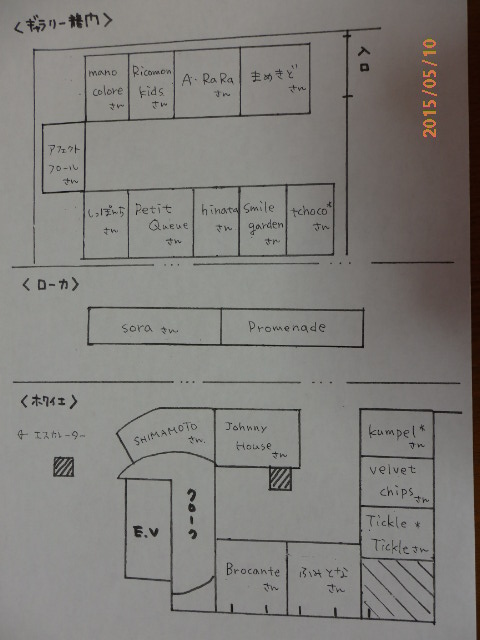 <ギャラリー龍内>
入口
mano
colore
さん
Ricomon
kids
さん
A・RaRa
さん
まめきど
さん
アフェクト
フロール
さん
しっぽんち
さん
Petit
Queue
さん
hinata
さん
smile
garden
さん
tchoco*
さん
<ローカ>
sora さん
Promenade
<ホワイエ>
← エスカレーター
SHIMAMOTO
さん
Johnny
House
さん
kumpel*
さん
velvet
chips さん
E.V
クローク
Tickle *
Tickle さん
Brocante
さん
ふみとな
さん
2015/05/10